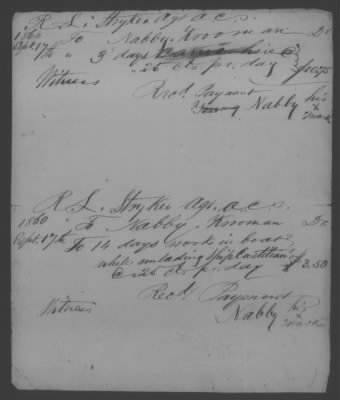 R. L. Stryker Agt. a.c.
1860 To Nabby, Krooman Dr
Sept. 17th " 3 days hire @
25 cts pr. day $0.75
Witness Recd. Payment
Nabby his
x
mark
R. L. Stryker Agt. a.c.s.
1860 To Nabby, Krooman Dr
Sept. 17th To 14 days work in boat
while unlading Ship Castilian
@ 25 cts pr. day $3.50
Recd. Payment
Witness Nabby his
x
mark